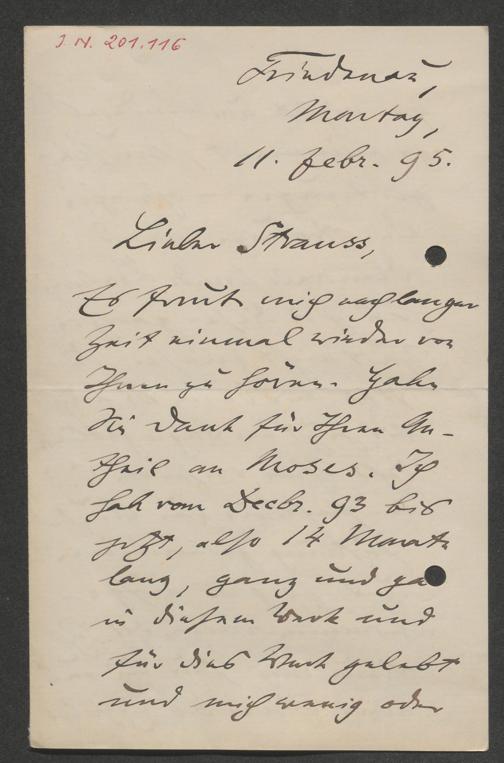 J. N. 201.116
Friedenau,
Montag,
11. Febr. 95.
Lieber Strauss,
Es freut mich nach langer
Zeit einmal wieder von
Ihnen zu hören. Haben
Sie Dank für Ihren An-
theil an Moses. Ich
hab vom Decbr. 93 bis
jetzt, also 14 Monate
lang, ganz und ga
in diesem Werk und
für dies Werk gelebt
und mich wenig oder